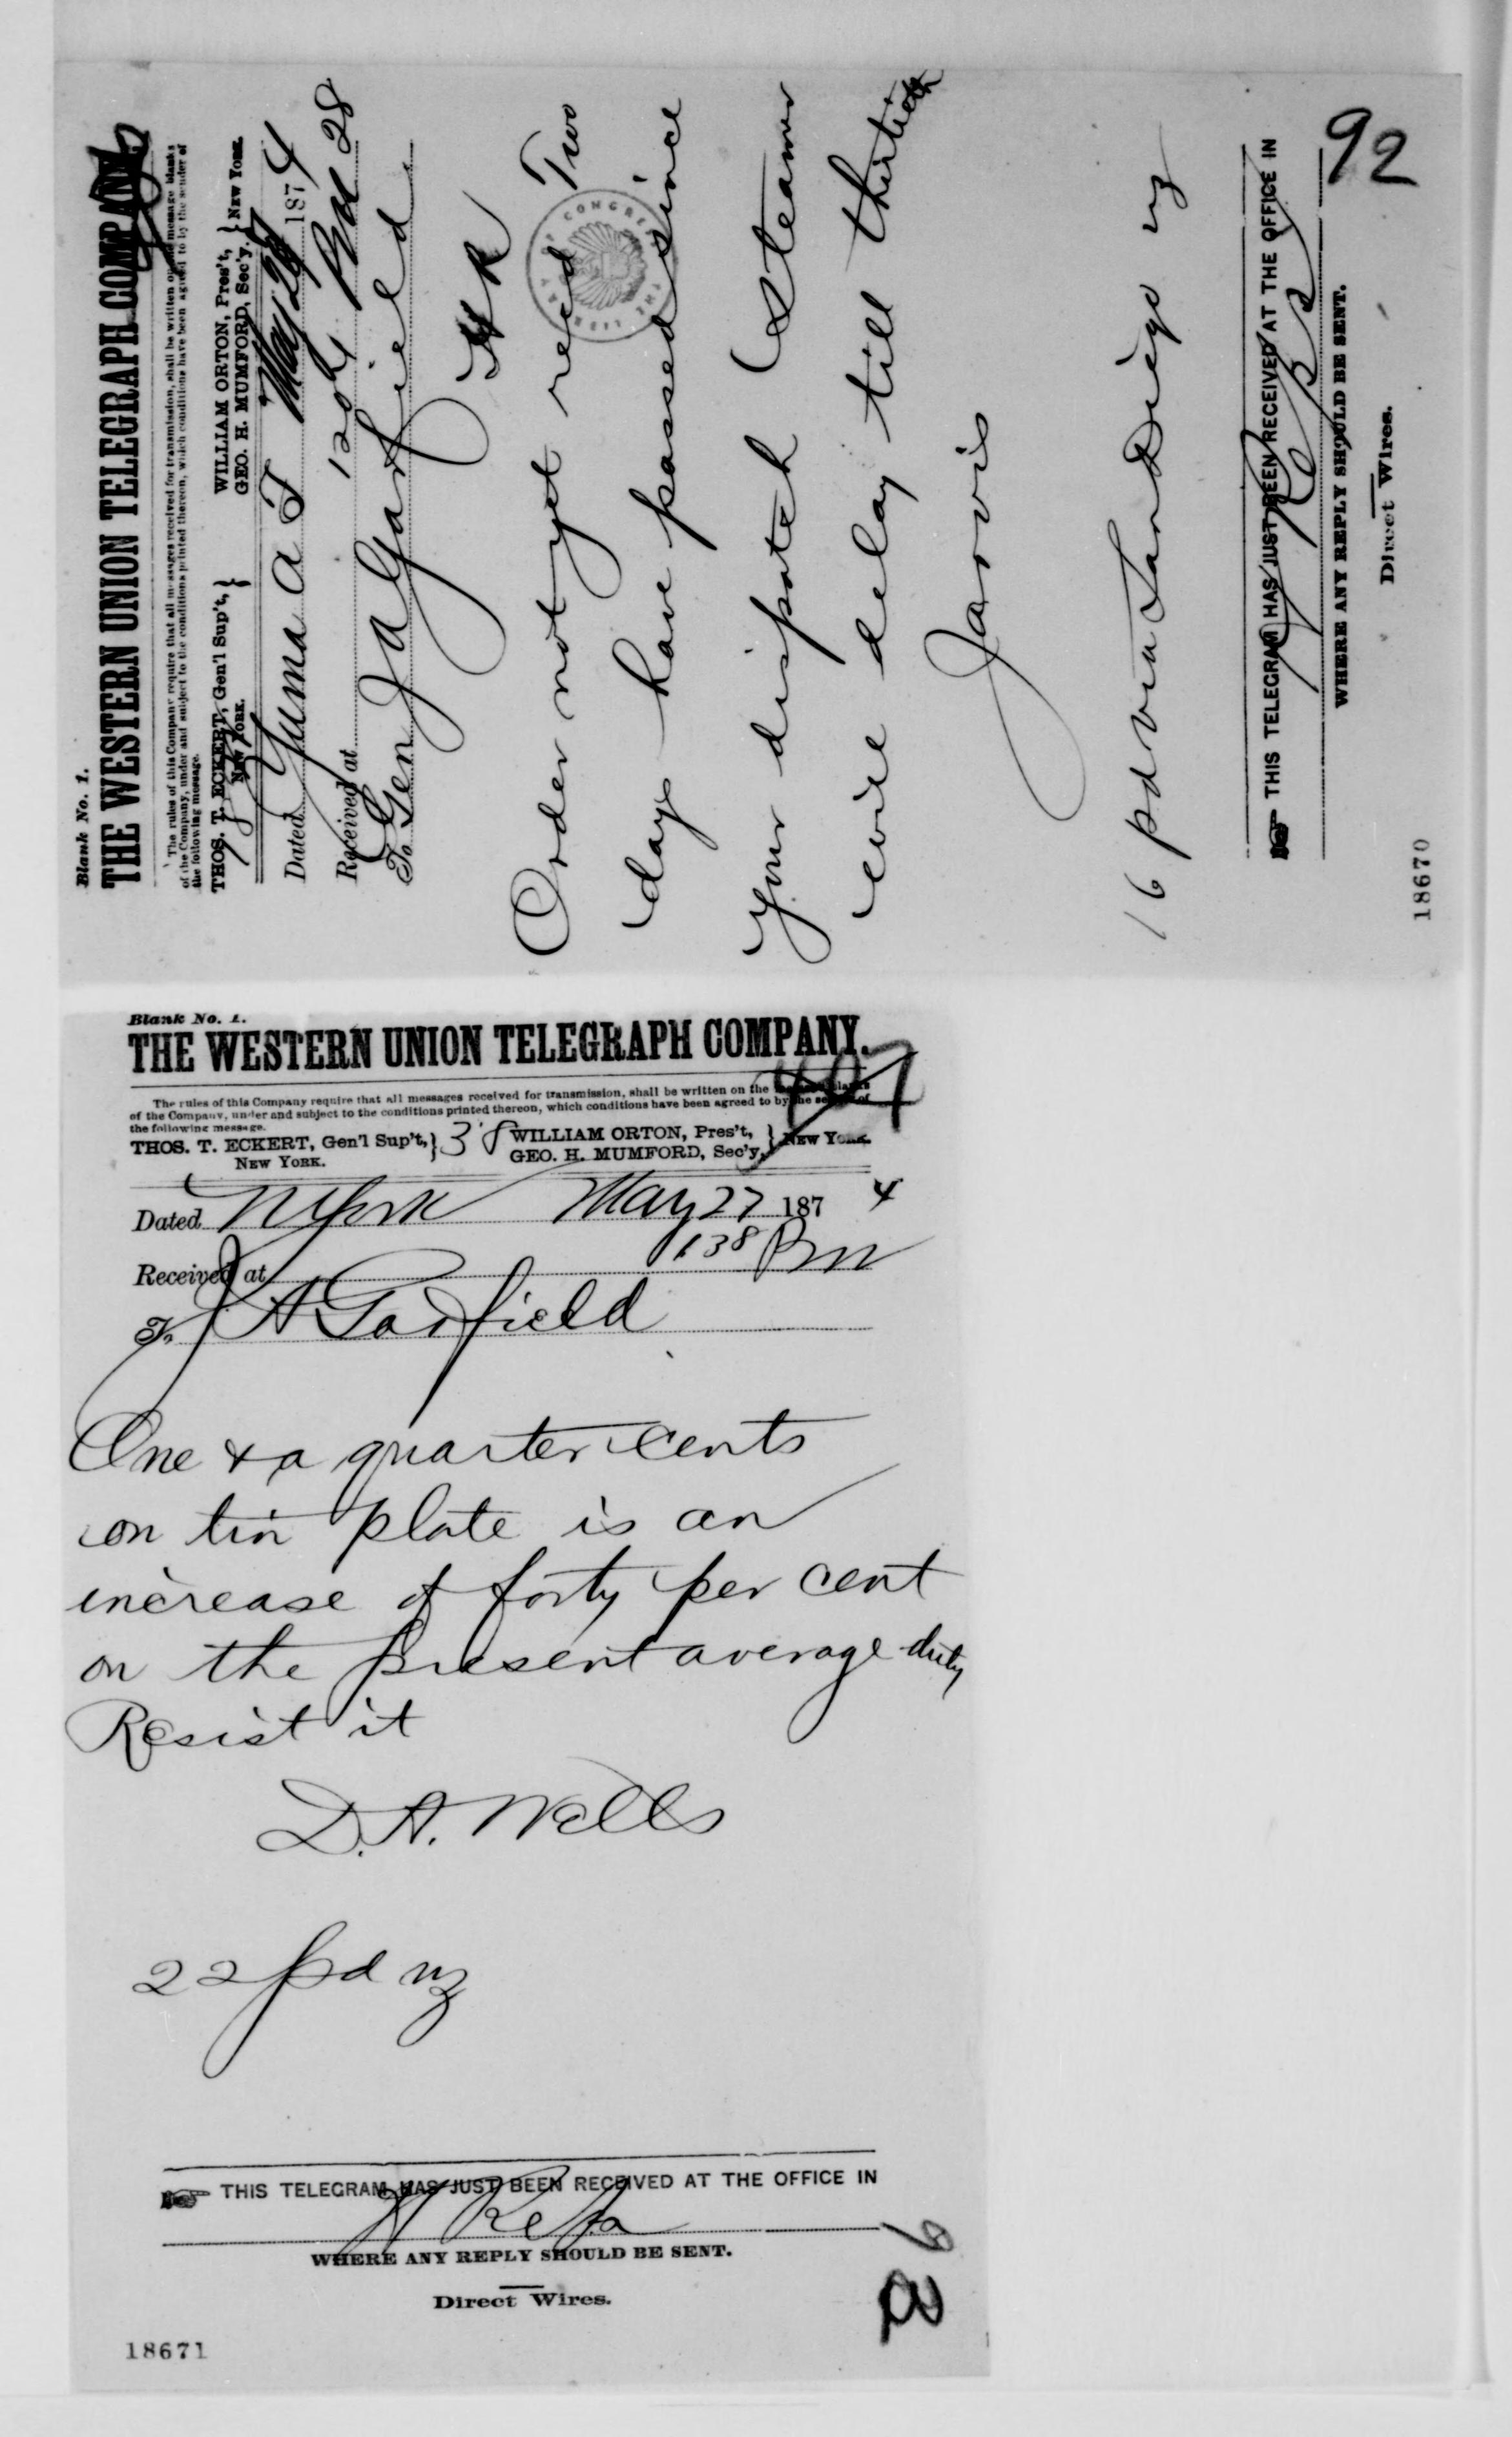 Blank No. 1.
THE WESTERN UNION TELEGRAPH COMPANY.
The rules of this Company require that all messages received for transmission, shall be written on the message blanks
of the Company, under and subject to the conditions printed thereon, which conditions have been agreed to by the sender of
the following message.
THOS. T. ECKERT, Gen'l Sup't, } WILLIAM ORTON, Pres't, } NEW YORK.
NEW YORK. GEO. H. MUMFORD, Sec'y,
Dated Yuma A T May 187 4
Received at 120 Pm 28
To Gen J A Garfield
H R
Order not yet recd Two
days have passed since
your dispatch Steamer
will delay till thirtieth
Jarvis
16 pd via San Diego
THIS TELEGRAM HAS JUST BEEN RECEIVED AT THE OFFICE IN
H Reps
WHERE ANY REPLY SHOULD BE SENT.
Direct Wires.
92
18670
Blank No. 1.
THE WESTERN UNION TELEGRAPH COMPANY.
The rules of this Company require that all messages received for transmission, shall be written on the message blanks
of the Company, under and subject to the conditions printed thereon, which conditions have been agreed to by the sender of
the following message.
THOS. T. ECKERT, Gen'l Sup't, } 38 WILLIAM ORTON, Pres't, } NEW YORK.
NEW YORK. GEO. H. MUMFORD, Sec'y,
Dated N York May 27 187 4
Received at 138 Pm
To J A Garfield
One & a quarter cents
on tin plate is an
increase of forty per cent
on the present average duty
Resist it
D. A. Wells
22 pd
THIS TELEGRAM HAS JUST BEEN RECEIVED AT THE OFFICE IN
H Reps
WHERE ANY REPLY SHOULD BE SENT.
Direct Wires.
18671